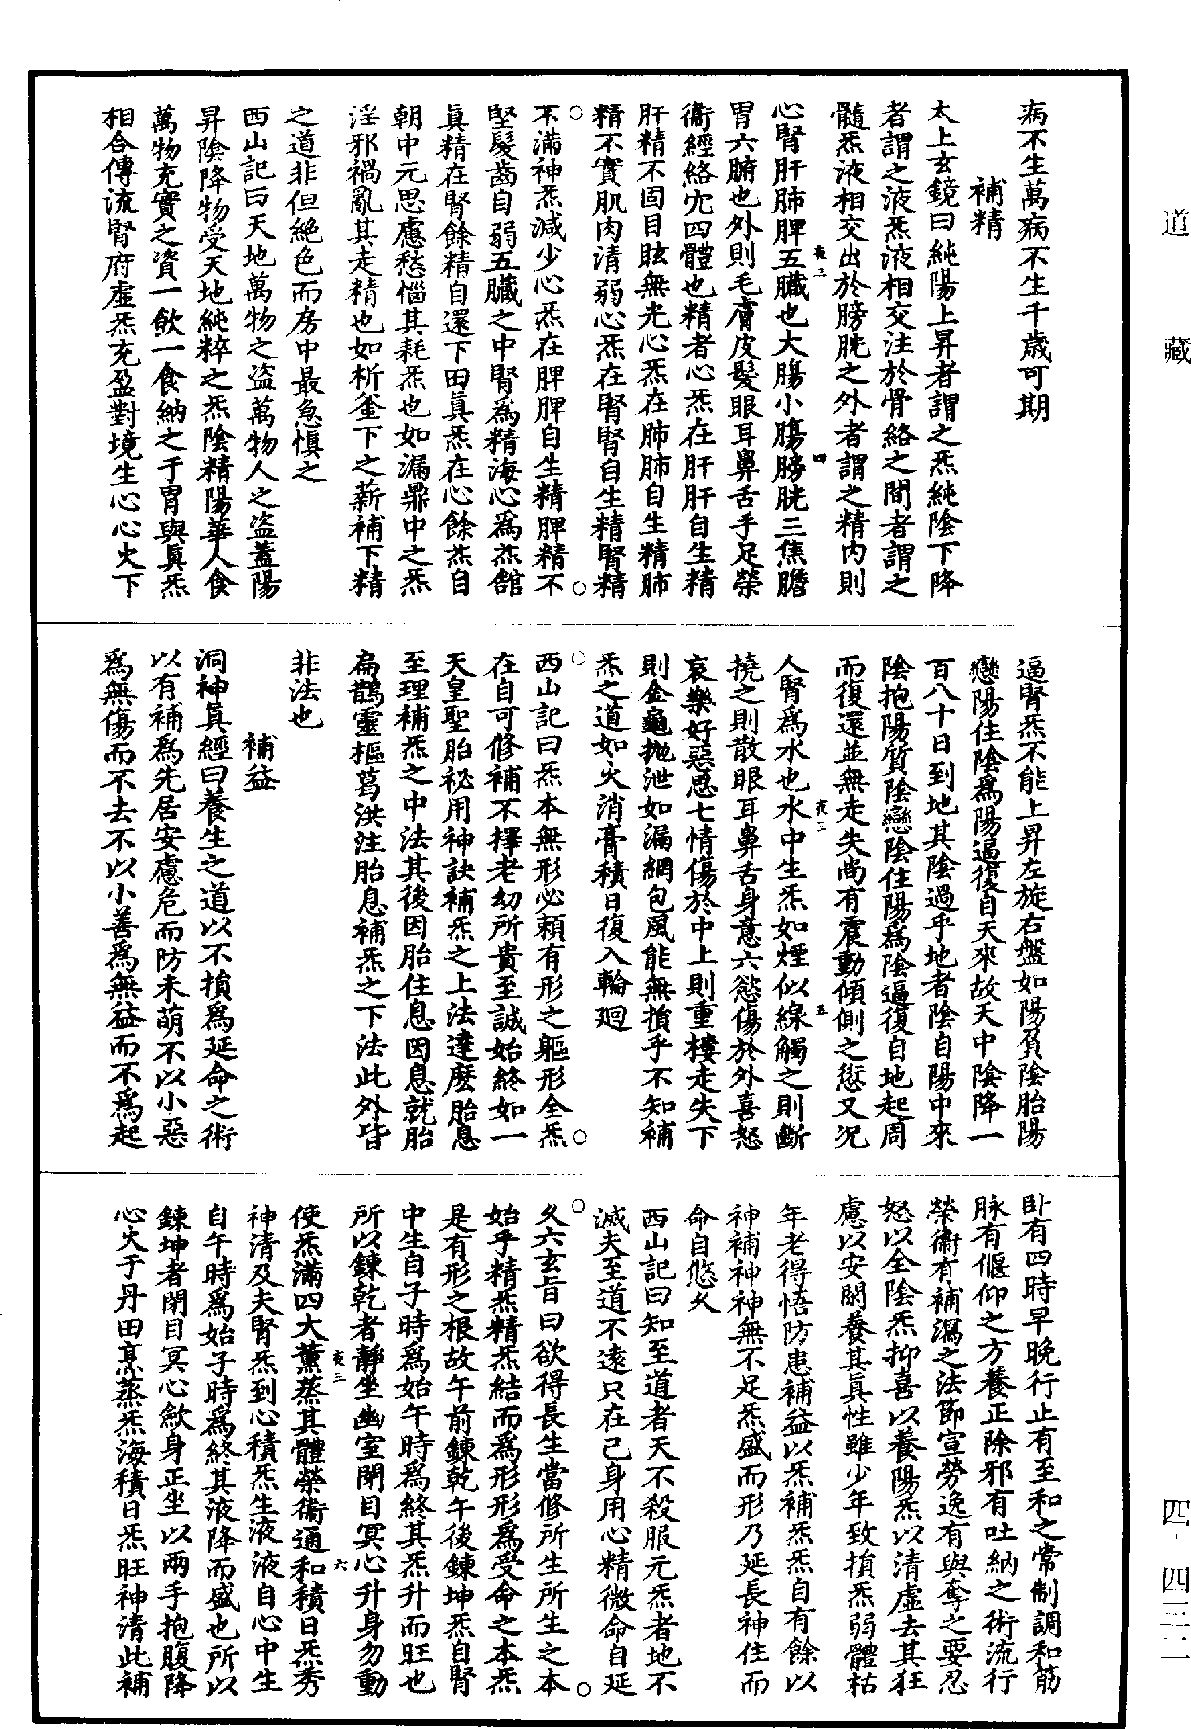 道藏
四-四三二
病不生萬病不生千歲可期
補精
太上玄鏡曰純陽上昇者謂之炁純陰下降
者謂之液炁液相交注於骨絡之間者謂之
髓炁液相交出於膀胱之外者謂之精内則
夜二
四
心腎肝肺脾五臟也大腸小膓膀胱三焦膽
胃六腑也外則毛膚皮髮眼耳鼻舌手足榮
衞經絡宂四體也精者心炁在肝肝自生精
肝精不固目眩無光心炁在肺肺自生精肺
精不實肌肉清弱心炁在腎腎自生精腎精
不滿神炁減少心炁在脾脾自生精脾精不
堅髮齒自弱五臟之中腎爲精海心爲炁舘
眞精在腎餘精自還下田眞炁在心餘炁自
朝中元思慮愁惱其耗炁也如漏鼎中之炁
淫邪禍亂其走精也如析釜下之薪補下精
之道非但絶色而房中最急愼之
西山記曰天地萬物之盜萬物人之盜蓋陽
昇陰降物受天地純粹之炁陰精陽華人食
萬物充實之資一飲一食納之于胃與眞炁
相合傳流腎府虛炁充盈對境生心心火下
逼腎炁不能上昇左旋右盤如陽負陰胎陽
戀陽住陰爲陽逼復自天來故天中陰降一
百八十日到地其陰過乎地者陰自陽中來
陰抱陽質陰戀陰住陽爲陰逼復自地起周
而復還並無走失尚有震動傾側之愆又况
夜二
五
人腎爲水也水中生炁如煙似線觸之則斷
撓之則散眼耳鼻舌身意六慾傷於外喜怒
哀樂好惡思七情傷於中上則重樓走失下
則金龜抛泄如漏網包風能無損乎不知補
炁之道如火消膏積日復入輪廻
西山記曰炁本無形必賴有形之軀形全炁
在自可修補不擇老幼所貴至誠始終如一
天皇聖胎祕用神訣補炁之上法達麽胎息
至理補炁之中法其後因胎住息因息就胎
扁鵲靈樞葛洪注胎息補炁之下法此外皆
非法也
補益
洞神眞經曰養生之道以不損爲延命之術
以有補為先居安慮危而防未萌不以小惡
爲無傷而不去不以小善爲無益而不爲起
卧有四時早晚行止有至和之常制調和筋
脉有偃仰之方養正除邪有吐納之術流行
榮衞有補瀉之法節宣勞逸有與奪之要忍
怒以全陰炁抑喜以養陽炁以清虛去其狂
慮以安閑養其眞性雖少年致損炁弱體枯
年老得悟防患補益以炁補炁炁自有餘以
神補神神無不足炁盛而形乃延長神住而
命自悠久
西山記曰知至道者天不殺服元炁者地不
滅夫至道不遠只在己身用心精微命自延
久六玄旨曰欲得長生當修所生所生之本
始乎精炁精炁結而爲形形爲受命之本炁
是有形之根故午前鍊乾午後鍊坤炁自腎
中生自子時爲始午時爲終其炁升而旺也
所以鍊乾者靜坐幽室閉目冥心升身勿動
夜三
六
使炁滿四大薰蒸其體榮衞通和積日炁秀
神清及夫腎炁到心積炁生液液自心中生
自午時爲始子時爲終其液降而盛也所以
鍊坤者閉目冥心歛身正坐以兩手抱腹降
心火于丹田烹蒸炁海積日炁旺神清此補